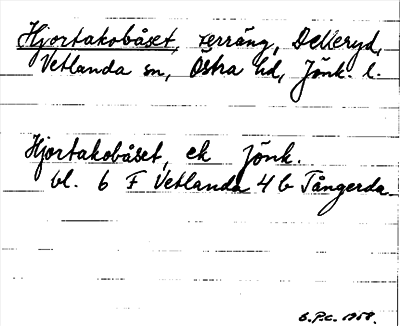 Hjortakobåset, terräng, Delleryd,
Vetlanda sn, Östra hd, Jönk. l.
Hjortakobåset, ek Jönk.
bl. 6 F Vetlanda 4 b Tångerda
B.P.C. 1958.